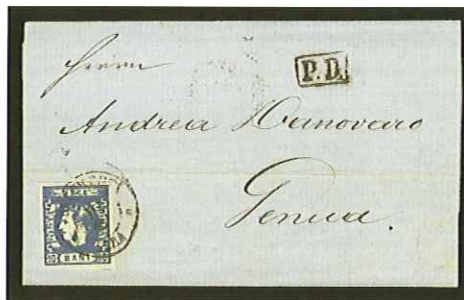 Herrn
P.D.
Andrea Danovaro
Genua.
BANI